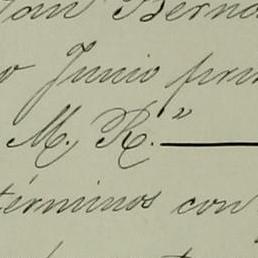 San Berna
o Junio prim
M. R.ª
términos con